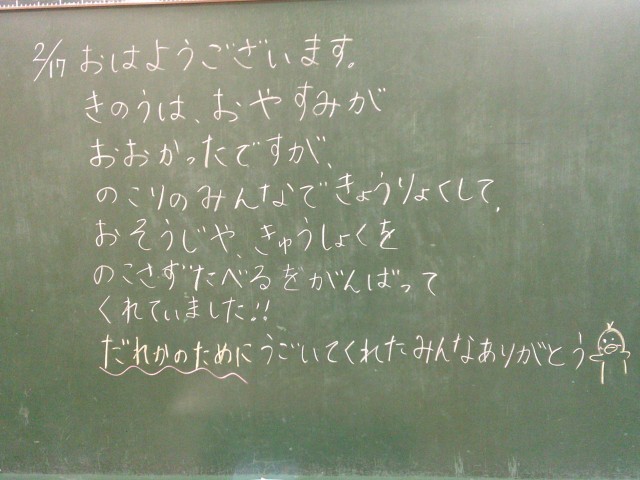 2/17 おはようございます。
きのうは、おやすみが
おおかったですが、
のこりのみんなできょうりょくして、
おそうじや、きゅうしょくを
のこさずたべるをがんばって
くれていました!!
だれかのためにうごいてくれたみんなありがとう